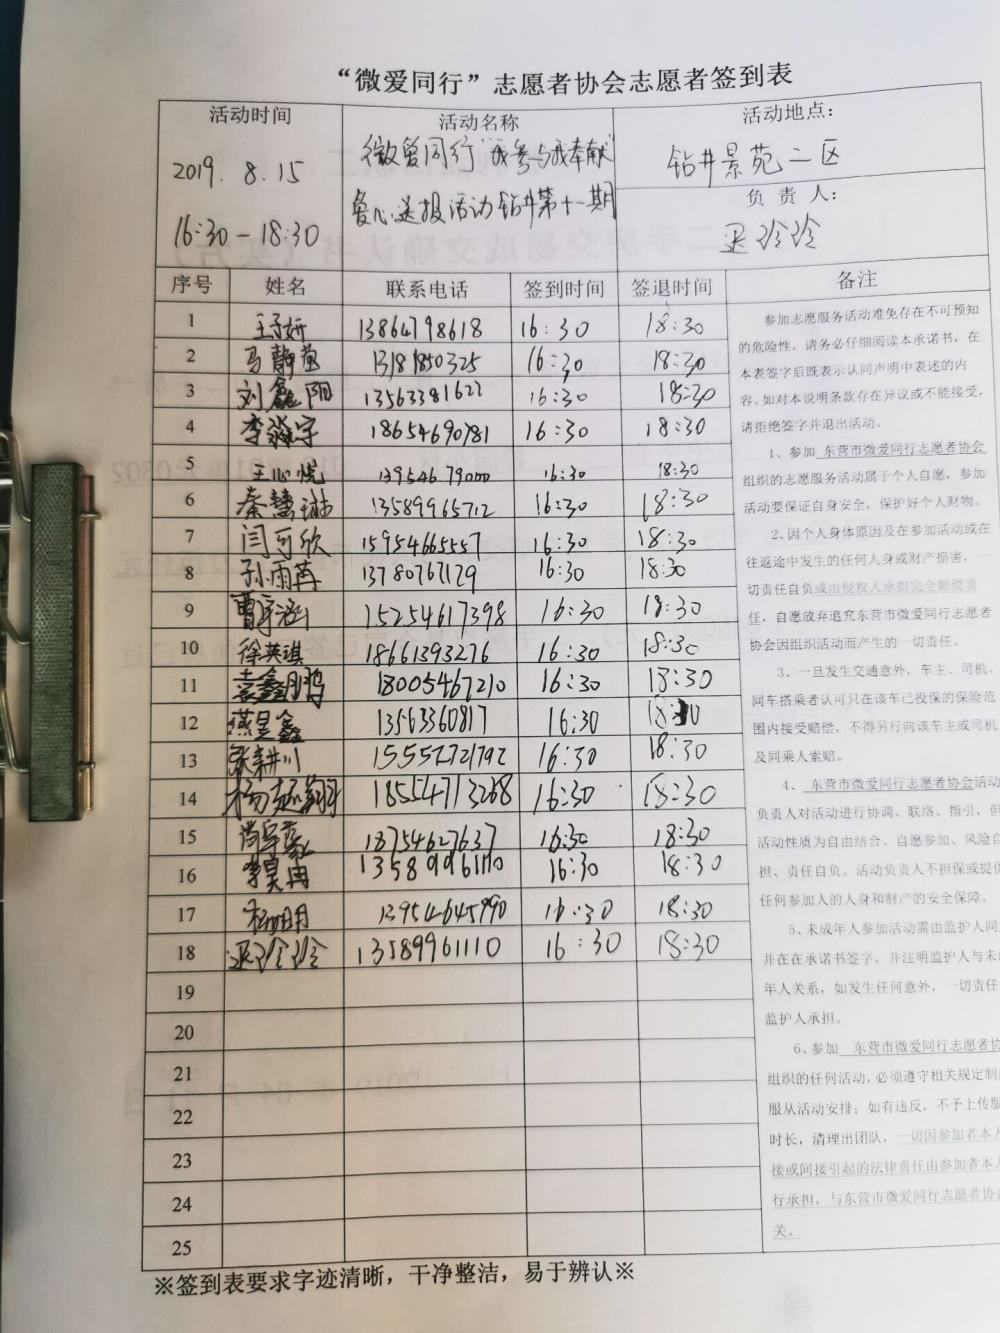 “微爱同行”志愿者协会志愿者签到表
活动时间
2019. 8. 15
16:30-18:30
活动名称
微爱同行"我参与我奉献"
爱心送报活动钻井第十一期
活动地点：
钻井景苑二区
负责人：
玲玲
序号 姓名 联系电话 签到时间 签退时间 备注
1 王子妍 13864798618 16:30 18:30
2 马静茵 13181850325 16:30 18:30
3 刘鑫阳 13563381622 16:30 18:30
4 李淼宇 18654690781 16:30 18:30
5 王心悦 13954679000 16:30 18:30
6 秦慧琳 13589965712 16:30 18:30
7 闫可欣 15954665557 16:30 18:30
8 孙雨苒 13780767129 16:30 18:30
9 曹家涵 15254617398 16:30 18:30
10 徐英琪 18661393276 16:30 18:30
11 袁鑫鹏 18005467210 16:30 18:30
12 燕昱鑫 13563360817 16:30 18:30
13 张耕川 155552721792 16:30 18:30
14 杨 18554713268 16:30 18:30
15 尚宇豪 18754627637 16:30 18:30
16 李昊冉 13589961110 16:30 18:30
17 杨明月 13954645990 16:30 18:30
18 玲玲 13589961110 16:30 18:30
19
20
21
22
23
24
25
参加志愿服务活动难免存在不可预知
的危险性，请务必仔细阅读本承诺书，在
本表签字后既表示认同声明中表述的内
容。如对本说明条款存在异议或不能接受，
请拒绝签字并退出活动。
1、参加 东营市微爱同行志愿者协会
组织的志愿服务活动属于个人自愿，参加
活动要保证自身安全，保护好个人财物。
2、因个人身体原因及在参加活动或在
往返途中发生的任何人身或财产损害，一
切责任自负或由侵权人承担完全赔偿责
任，自愿放弃追究东营市微爱同行志愿者
协会因组织活动而产生的一切责任。
3、一旦发生交通意外，车主、司机、
同车搭乘者认可只在该车已投保的保险范
围内接受赔偿，不得另行向该车主或司机
及同乘人索赔。
4、东营市微爱同行志愿者协会活动
负责人对活动进行协调、联络、指引，但
活动性质为自由结合、自愿参加、风险自
担、责任自负。活动负责人不担保或提供
任何参加人的人身和财产的安全保障。
5、未成年人参加活动需由监护人同
并在在承诺书签字，并注明监护人与未
年人关系，如发生任何意外，一切责任
监护人承担。
6、参加 东营市微爱同行志愿者协
组织的任何活动，必须遵守相关规定制
服从活动安排；如有违反，不予上传服
时长，清理出团队，一切因参加者本人
接或间接引起的法律责任由参加者本人
行承担，与东营市微爱同行志愿者协会
关。
※签到表要求字迹清晰，干净整洁，易于辨认※